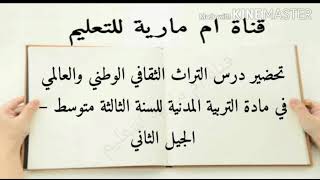 Made with KINEMASTER
قناة ام مارية للتعليم
تحضير درس التراث الثقافي الوطني والعالمي
في مادة التربية المدنية للسنة الثالثة متوسط –
الجيل الثاني